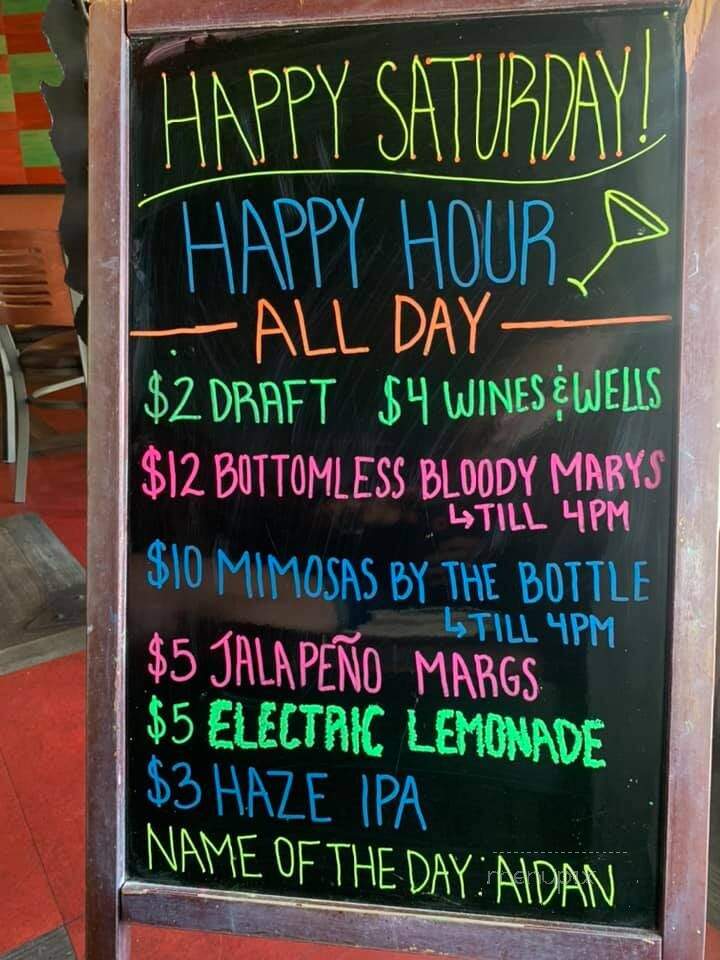 HAPPY SATURDAY!
HAPPY HOUR
ALL DAY
$2 DRAFT $4 WINES & WELLS
$12 BOTTOMLESS BLOODY MARYS
↳TILL 4PM
$10 MIMOSAS BY THE BOTTLE
↳TILL 4PM
$5 JALAPEÑO MARGS
$5 ELECTRIC LEMONADE
$3 HAZE IPA
NAME OF THE DAY: AIDAN
menupix